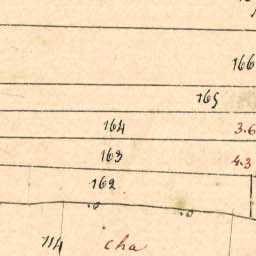 166
165
164 3.6
163 4.3
162
714 cha